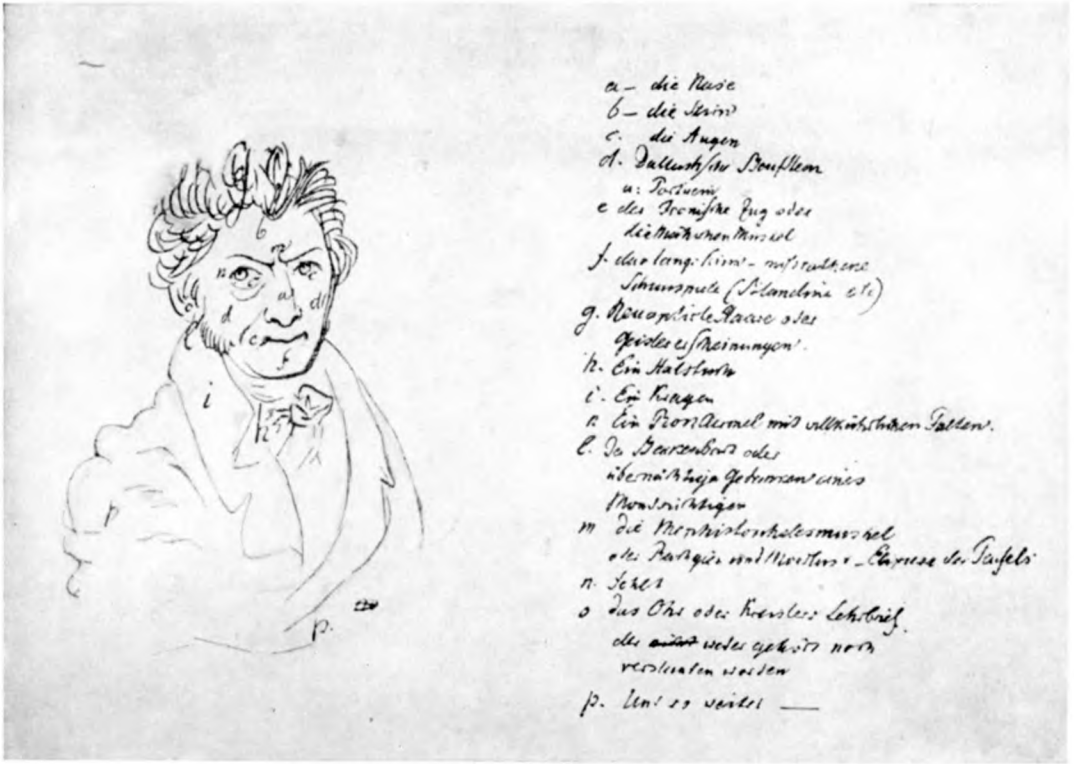 b
m
n
c
a
d
e
f
h
i
p.
a – die Nase
b – die Stirn
c. die Augen
d.
u: Portwein
e der Ironische Zug oder
die Märchenmuskel
f. das lange Kinn – mißrathene
Schauspiele (Blandina etc)
g. Haare oder
Geistererscheinungen.
h. Ein Halstuch
i. Ein Kragen
k Ein Rockaermel mit willkührlichen Falten.
l. Der Backenbart oder
übernächtige Gedanken eines
Mondsüchtigen
m die Mephistophelesmuskel
oder Rachgier und Mordlust – Elixiere des Teufels
n.
o das Ohr oder Kreislers Lehrbrief.
der weder gehört noch
verstanden worden
p. Und so weiter —